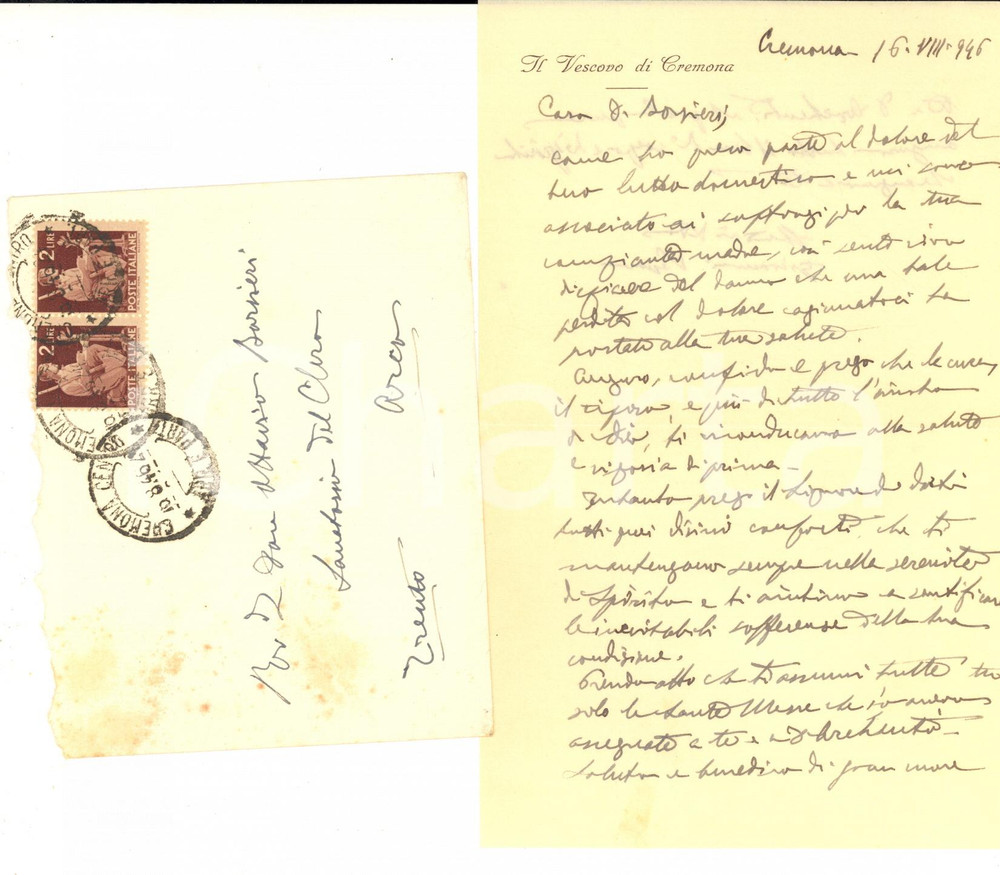 Il Vescovo di Cremona
Cremona 16. VIII. 946
Caro D. Borsieri,
come ho preso parte al dolore del
tuo lutto domestico e mi sono
associato ai suffragi per la tua
compianta madre, così sento vivo
dispiacere del danno che una tale
perdita col dolore cagionatoci ha
portato alla tua salute.
Auguro, confido e prego che le cure,
il riposo, e più di tutto l'aiuto
di Dio, ti riconducano alla salute
e vigoria di prima.
Intanto prego il Signore di darti
tutti quei divini conforti che ti
mantengano sempre nella serenità
di spirito e ti aiutino a santificare
le inevitabili sofferenze della tua
condizione.
Prendo atto che ti assumi tutte tu
solo le sante Messe che io avevo
assegnate a te e a D. Archenti
Saluto e benedico di gran cuore
2 LIRE
POSTE ITALIANE
2 LIRE
POSTE ITALIANE
CREMONA CENTRO
Rev D Don Borsieri
Sanatorio del Clero
Arco
Trento